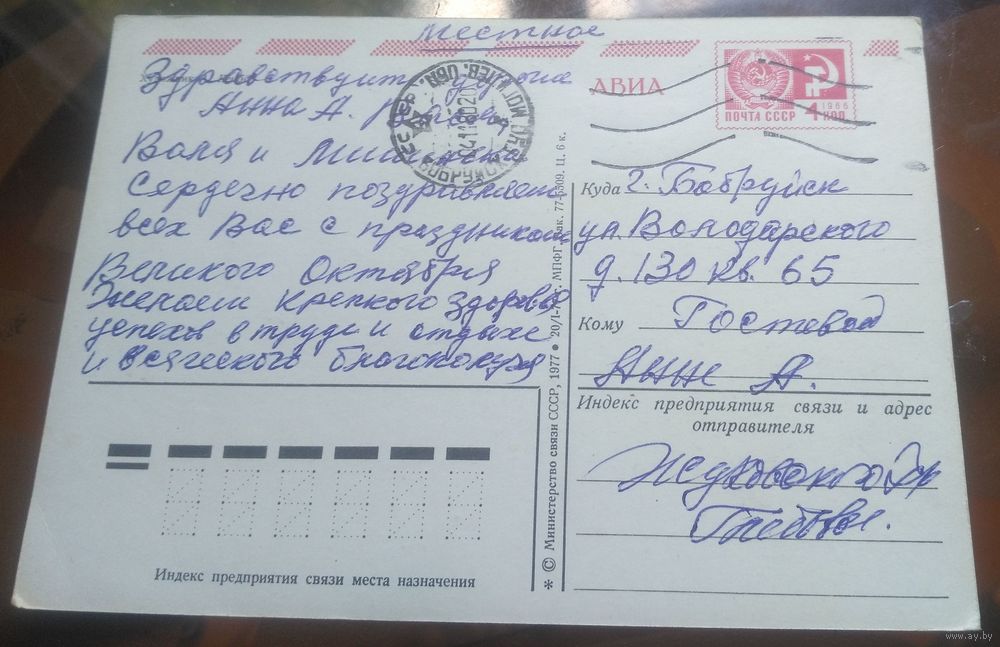 Местное
Здравствуйте дорогие
Анна А.
Валя и
Сердечно поздравляем
всех Вас с праздником
Великого Октября
Желаем крепкого здоровья
успехов в труде и отдыхе
и всяческого благополучия
АВИА
ПОЧТА СССР
1966
4 КОП
Куда г. Бобруйск
ул. Володарского
д. 130 кв. 65
Кому
Анне А.
Индекс предприятия связи и адрес
отправителя
Индекс предприятия связи места назначения
* © Министерство связи СССР, 1977 • 20/I-77 г. МПФГ. Зак. 77-5509. Ц. 6 к.
www.ay.by